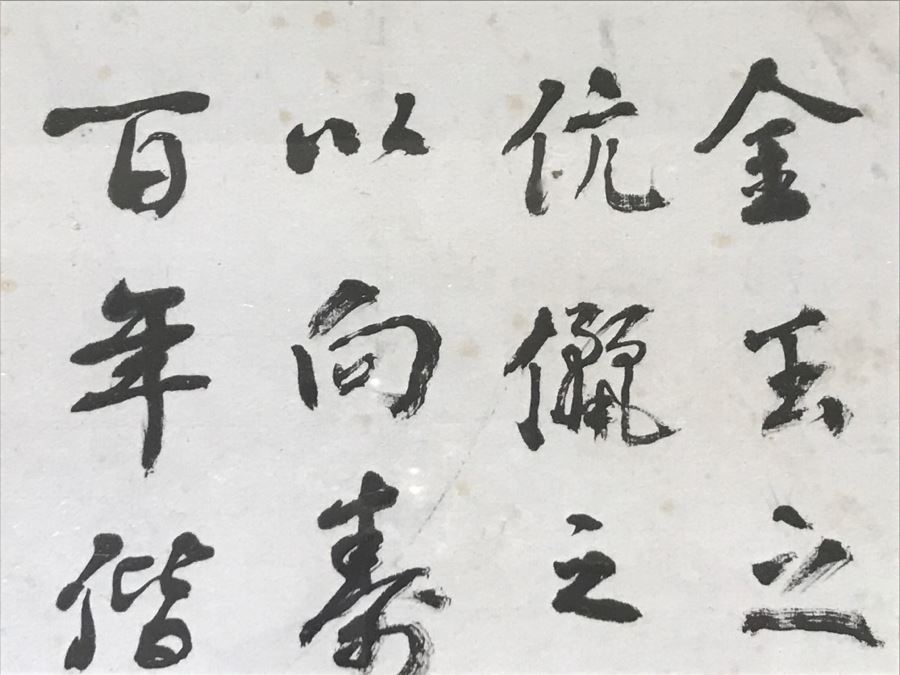 金玉立
伉儷之
以向壽
百年偕